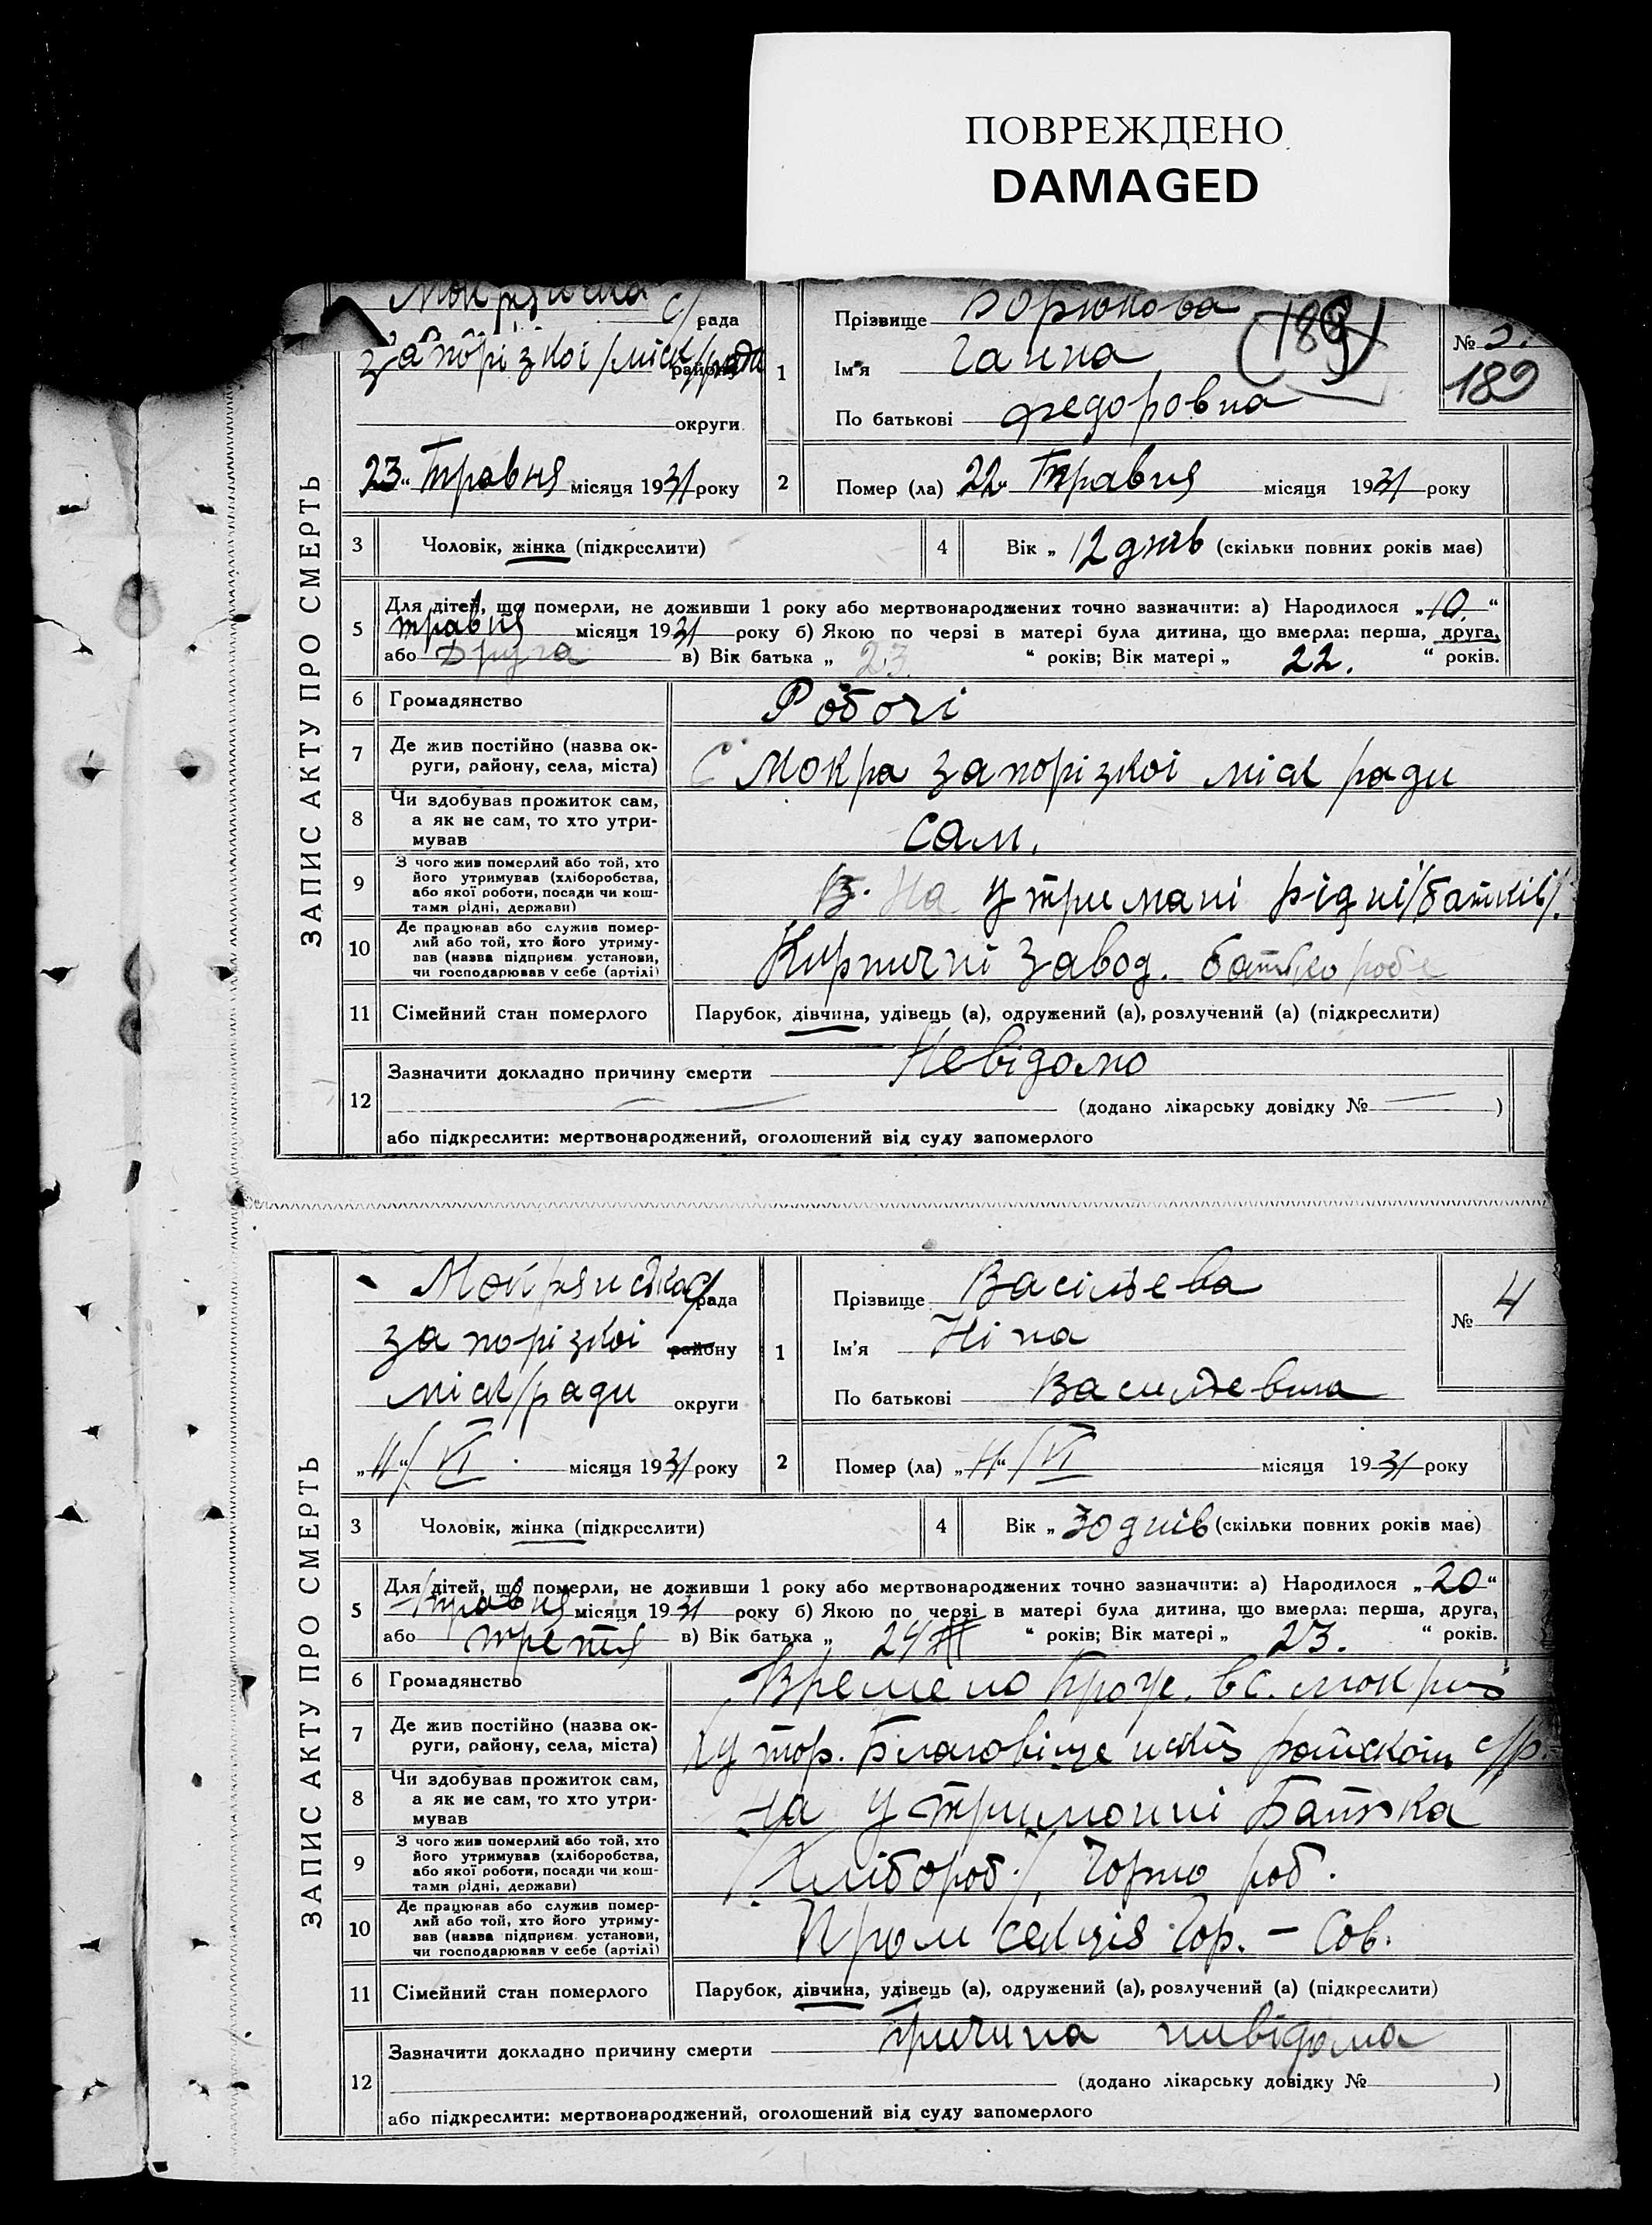 ПОВРЕЖДЕНО
DAMAGED
ЗАПИС АКТУ ПРО СМЕРТЬ
с/рада
Запорізкоі /міск/ради району
округи
1 Прізвище
Ім'я Ганна
По батькові Федоровна
№ 3.
189
189
„23“ Травня місяця 1931 року
2 Помер (ла) „22“ Травня місяця 1931 року
3 Чоловік, жінка (підкреслити)
4 Вік „12 днів (скільки повних років має)
5 Для дітей, що померли, не доживши 1 року або мертвонароджених точно зазначити: а) Народилося „10.“
травня місяця 1931 року б) Якою по черзі в матері була дитина, що вмерла: перша, друга,
або Друга в) Вік батька „23.“ років; Вік матері „22.“ років.
6 Громадянство Робочі
7 Де жив постійно (назва округи, району, села, міста) С Мокра Запорізкоі міск ради
8 Чи здобував прожиток сам, а як не сам, то хто утримував сам.
9 З чого жив померлий або той, хто його утримував (хліборобства, або якої роботи, посади чи коштами рідні, держави) На утримані рідні /батьків/.
10 Де працював або служив померлий або той, хто його утримував (назва підприєм. установи, чи господарював у себе (артілі) Кирпичні завод. батько робе
11 Сімейний стан померлого Парубок, дівчина, удівець (а), одружений (а), розлучений (а) (підкреслити)
12 Зазначити докладно причину смерти Невідомо
(додано лікарську довідку № — )
або підкреслити: мертвонароджений, оголошений від суду запомерлого
ЗАПИС АКТУ ПРО СМЕРТЬ
с/рада
Запорізкоі району
міск/ради округи
1 Прізвище Васільева
Ім'я Ніна
По батькові Васильевна
№ 4
„11“/VI місяця 1931 року
2 Помер (ла) „11“/VI місяця 1931 року
3 Чоловік, жінка (підкреслити)
4 Вік „30 днів (скільки повних років має)
5 Для дітей, що померли, не доживши 1 року або мертвонароджених точно зазначити: а) Народилося „20“
Травня місяця 1931 року б) Якою по черзі в матері була дитина, що вмерла: перша, друга,
або третя в) Вік батька „24“ років; Вік матері „23.“ років.
6 Громадянство Времено в с. мокрій
7 Де жив постійно (назва округи, району, села, міста) с/р.
8 Чи здобував прожиток сам, а як не сам, то хто утримував на утриманні Батька
9 З чого жив померлий або той, хто його утримував (хліборобства, або якої роботи, посади чи коштами рідні, держави) /Хлібороб./, Чорно роб.
10 Де працював або служив померлий або той, хто його утримував (назва підприєм. установи, чи господарював у себе (артілі) Пром секція Гор. – Сов.
11 Сімейний стан померлого Парубок, дівчина, удівець (а), одружений (а), розлучений (а) (підкреслити)
12 Зазначити докладно причину смерти Причина нивідома
(додано лікарську довідку № )
або підкреслити: мертвонароджений, оголошений від суду запомерлого